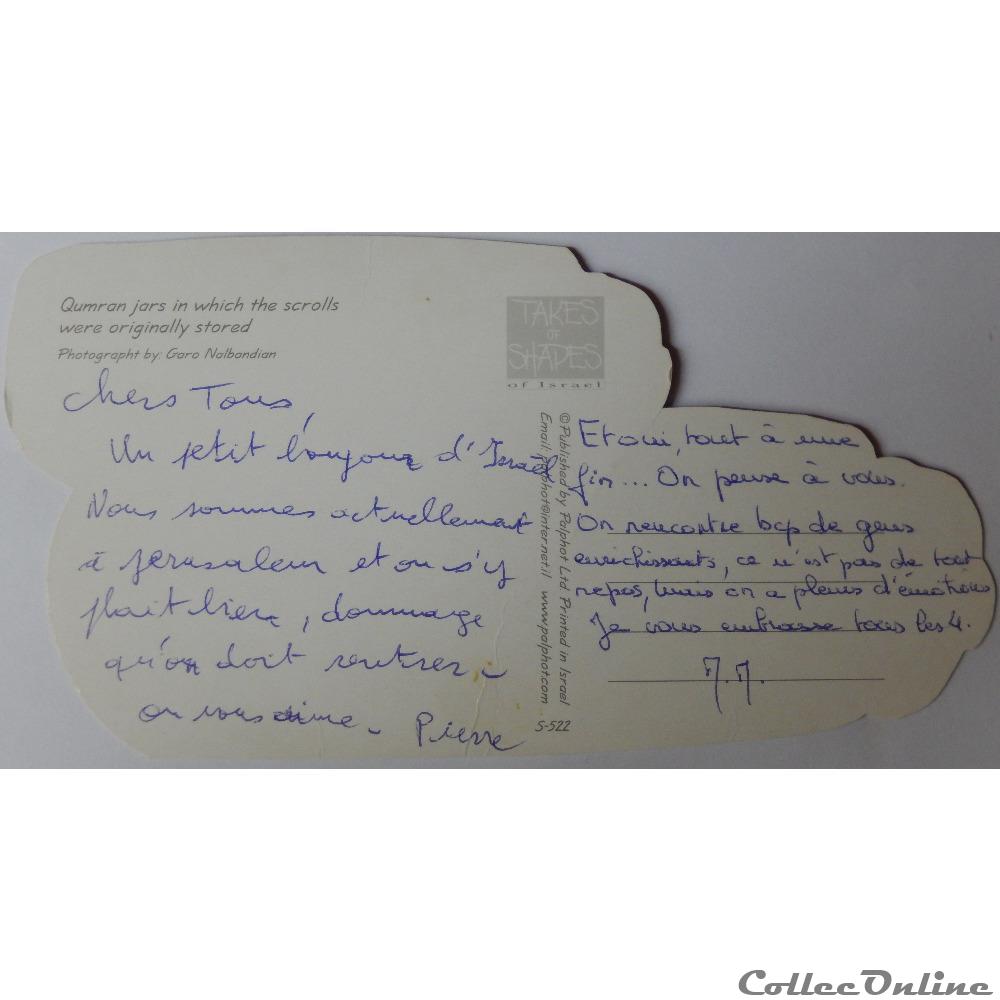 Qumran jars in which the scrolls
were originally stored
Photographt by: Garo Nalbandian
TAKES
OF
SHAPES
of Israel
Chers Tous,
Un petit bonjour d'Israël
Nous sommes actuellement
à Jerusalem et on s'y
plait bien, dommage
qu'on doit rentrer -
on vous aime - Pierre
©Published by Palphot Ltd. Printed in Israel
Email: palphot@inter.net.il www.palphot.com
S-522
Et oui, tout à une
fin... On pense à vous.
On rencontre bcp de gens
enrichissants, ce n'est pas de tout
repos, mais on a pleins d'émotions
Je vous embrasse tous les 4.
M.M.
CollecOnline